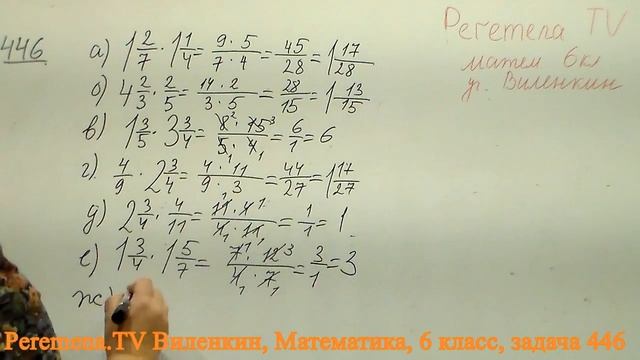 446
а) 1 2/7 · 1 1/4 = 9 · 5 / 7 · 4 = 45/28 = 1 17/28
б) 4 2/3 · 2/5 = 14 · 2 / 3 · 5 = 28/15 = 1 13/15
в) 1 3/5 · 3 3/4 = 8 2 · 15 3 / 5 1 · 4 1 = 6/1 = 6
г) 4/9 · 2 3/4 = 4 · 11 / 9 · 3 = 44/27 = 1 17/27
д) 2 3/4 · 4/11 = 11 1 · 4 1 / 4 1 · 11 1 = 1/1 = 1
е) 1 3/4 · 1 5/7 = 7 1 · 12 3 / 4 1 · 7 1 = 3/1 = 3
ж)
Peremena TV
матем 6 кл
у. Виленкин
Peremena.TV Виленкин, Математика, 6 класс, задача 446